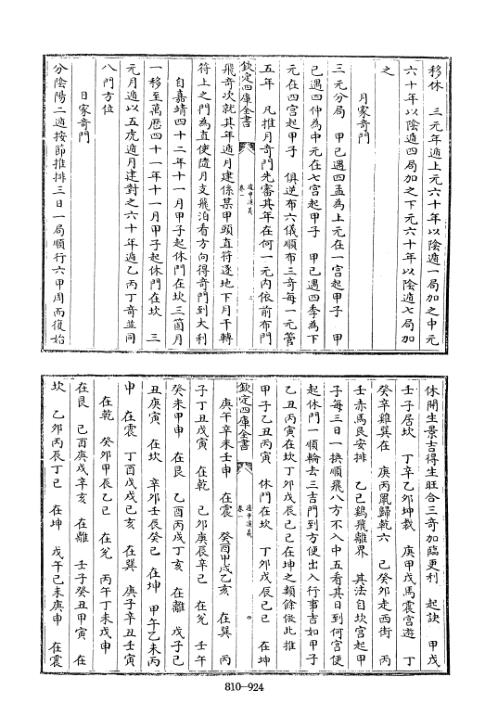 移休　三元年遁上元六十年以陰遁一局加之中元
六十年以陰遁四局加之下元六十年以陰遁七局加
之
月家奇門
三元分局　甲己遇四孟為上元在一宮起甲子　甲
己遇四仲為中元在七宮起甲子　甲己遇四季為下
元在四宮起甲子　俱逆布六儀順布三奇每一元管
五年　凡推月奇門先審其年在何一元內依前布門
欽定四庫全書　遁甲演義　卷一
飛奇次就其年遁月建係某甲頭直符逐地下月干轉
符上之門為直使隨月支飛泊看方向得奇門到大利
自嘉靖四十二年十一月甲子起休門在坎三箇月
一移至萬歷四十一年十一月甲子起休門在坎　三
元月遁以五虎遁月建對之六十年遁乙丙丁奇並同
八門方位
日家奇門
分陰陽二遁按節推排三日一局順行六甲周而復始
休開生景吉得生旺合三奇加臨更利　起訣　甲戊
壬子居坎　丁辛乙卯坤數　庚甲戊馬震宮遊　丁
癸辛雞巽在　庚丙鼠歸乾六　己癸卯走西街　丙
壬赤馬艮安排　乙己鷄飛離界　其法自坎宮起甲
子每三日一換順飛八方不入中五看其日到何宮便
起休門一順輪去三吉門到方便出入行事吉如甲子
乙丑丙寅在坎丁卯戊辰己巳在坤之類餘倣此推
甲子乙丑丙寅　休門在坎　丁卯戊辰己巳　在坤
欽定四庫全書　遁甲演義　卷一
庚午辛未壬申　在震　癸酉甲戌乙亥　在巽　丙
子丁丑戊寅　在乾　己卯庚辰辛巳　在兌　壬午
癸未甲申　在艮　乙酉丙戌丁亥　在離　戊子己
丑庚寅　在坎　辛卯壬辰癸巳　在坤　甲午乙未丙
申　在震　丁酉戊戌己亥　在巽　庚子辛丑壬寅
在乾　癸卯甲辰乙巳　在兌　丙午丁未戊申
在艮　己酉庚戌辛亥　在離　壬子癸丑甲寅　在
坎　乙卯丙辰丁巳　在坤　戊午己未庚申　在震
810—924